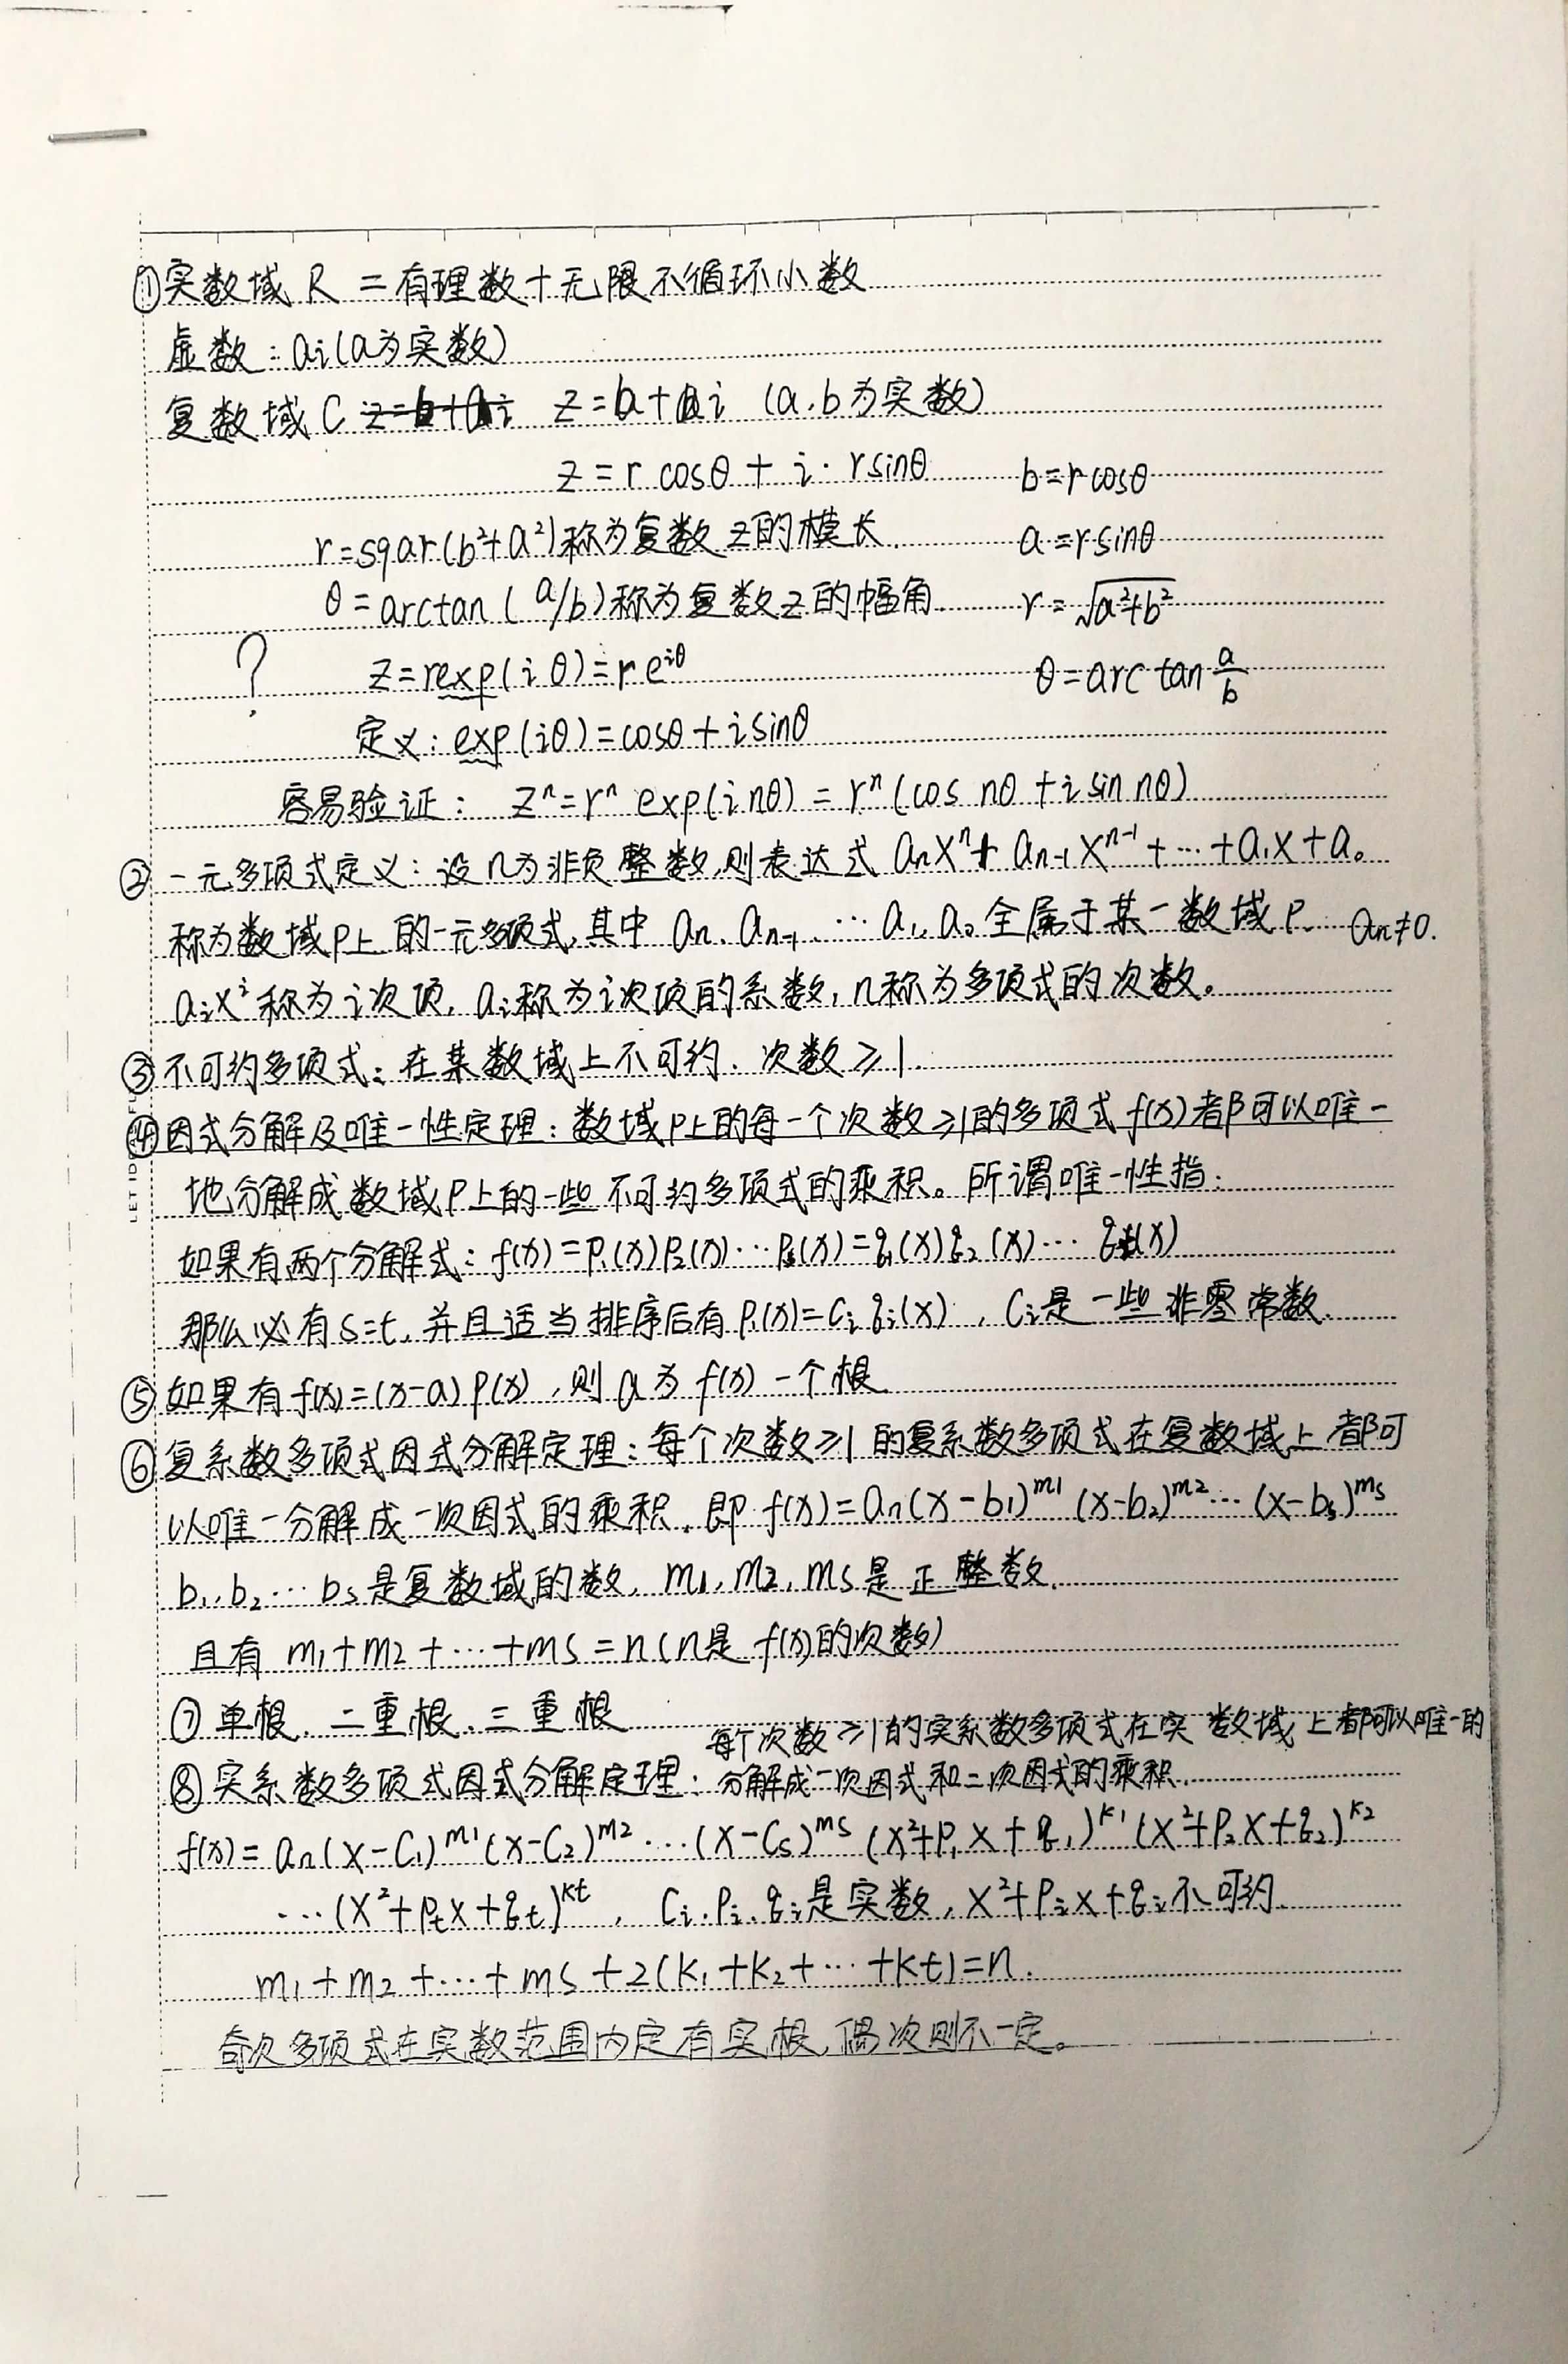 ①实数域 R = 有理数+无限不循环小数
虚数:ai(a为实数)
复数域 C z=b+ai z=b+ai (a.b为实数)
z=r cosθ + i · rsinθ b=rcosθ
r=sqar(b²+a²)称为复数z的模长. a=rsinθ
θ=arctan(a/b)称为复数z的幅角. r=√a²+b²
? z=rexp(iθ)=re^{iθ} θ=arc tan a/b
定义:exp(iθ)=cosθ+isinθ
容易验证: zⁿ=rⁿ exp(inθ)=rⁿ(cos nθ+i sin nθ)
② 一元多项式定义:设n为非负整数,则表达式 aₙxⁿ+aₙ₋₁xⁿ⁻¹+…+a₁x+a₀
称为数域P上的一元多项式,其中 aₙ、aₙ₋₁、…a₁,a₀全属于某一数域P. aₙ≠0.
aᵢxⁱ称为i次项,aᵢ称为i次项的系数,n称为多项式的次数。
③不可约多项式:在某数域上不可约.次数≥1.
④因式分解及唯一性定理:数域P上的每一个次数≥1的多项式f(x)都可以唯一
地分解成数域P上的一些不可约多项式的乘积。所谓唯一性指:
如果有两个分解式:f(x)=P₁(x)P₂(x)…Pₛ(x)=q₁(x)q₂(x)…qₜ(x)
那么必有s=t,并且适当排序后有Pᵢ(x)=Cᵢqᵢ(x),Cᵢ是一些非零常数.
⑤如果有f(x)=(x-a)P(x),则a为f(x)一个根.
⑥复系数多项式因式分解定理:每个次数≥1的复系数多项式在复数域上都可
以唯一分解成一次因式的乘积.即f(x)=aₙ(x-b₁)^{m1}(x-b₂)^{m2}…(x-bₛ)^{ms}
b₁,b₂…bₛ是复数域的数,m₁,m₂,ms是正整数.
且有 m₁+m₂+…+ms=n(n是f(x)的次数)
⑦单根、二重根、三重根
每个次数≥1的实系数多项式在实数域上都可以唯一的
⑧实系数多项式因式分解定理:分解成一次因式和二次因式的乘积.
f(x)=aₙ(x-C₁)^{m1}(x-C₂)^{m2}…(x-Cₛ)^{ms}(x²+P₁x+q₁)^{k1}(x²+P₂x+q₂)^{k2}
…(x²+Pₜx+qₜ)^{kt},Cᵢ.Pᵢ.qᵢ是实数,x²+Pᵢx+qᵢ不可约.
m₁+m₂+…+ms+2(k₁+k₂+…+kt)=n.
奇次多项式在实数范围内定有实根,偶次则不一定。